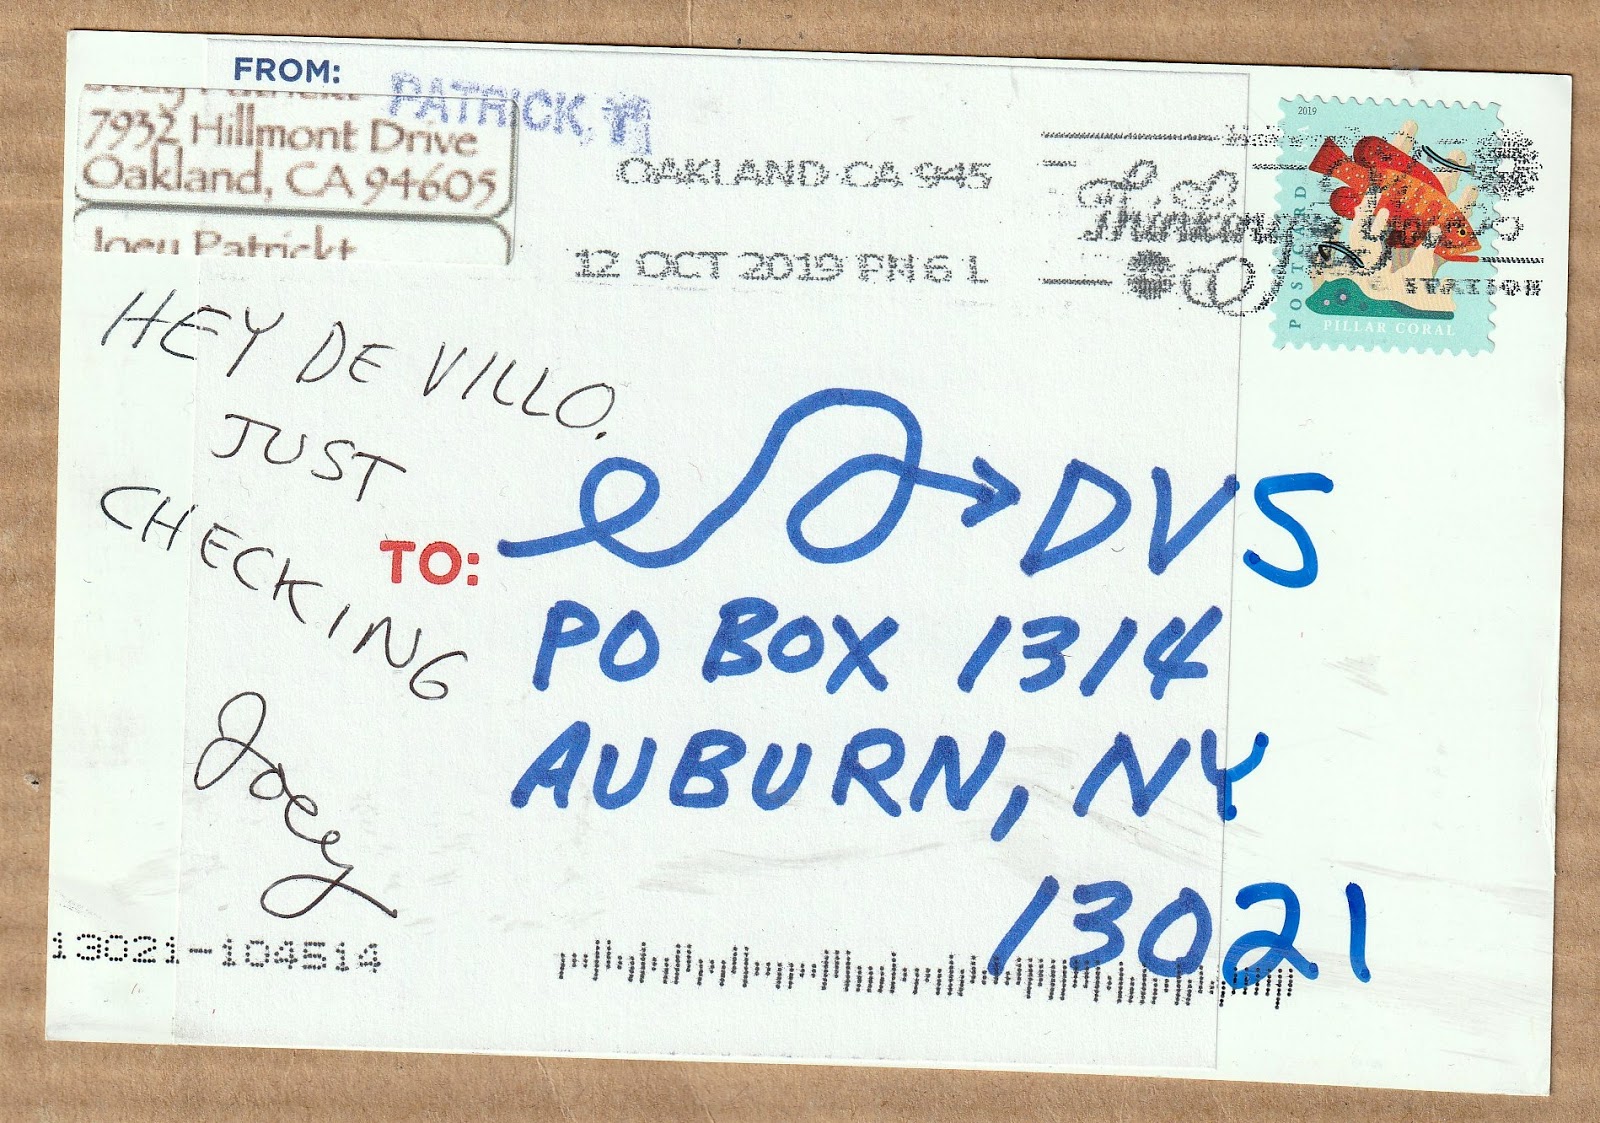 FROM:
PATRICK
7932 Hillmont Drive
Oakland, CA 94605
Joey Patrickt
OAKLAND CA 945
12 OCT 2019 PM 6 L
Thinking
2019
POSTCARD
PILLAR CORAL
STATION
HEY DE VILLO.
JUST
CHECKING
Joey
TO:
DVS
PO BOX 1314
AUBURN, NY
13021
13021-104514